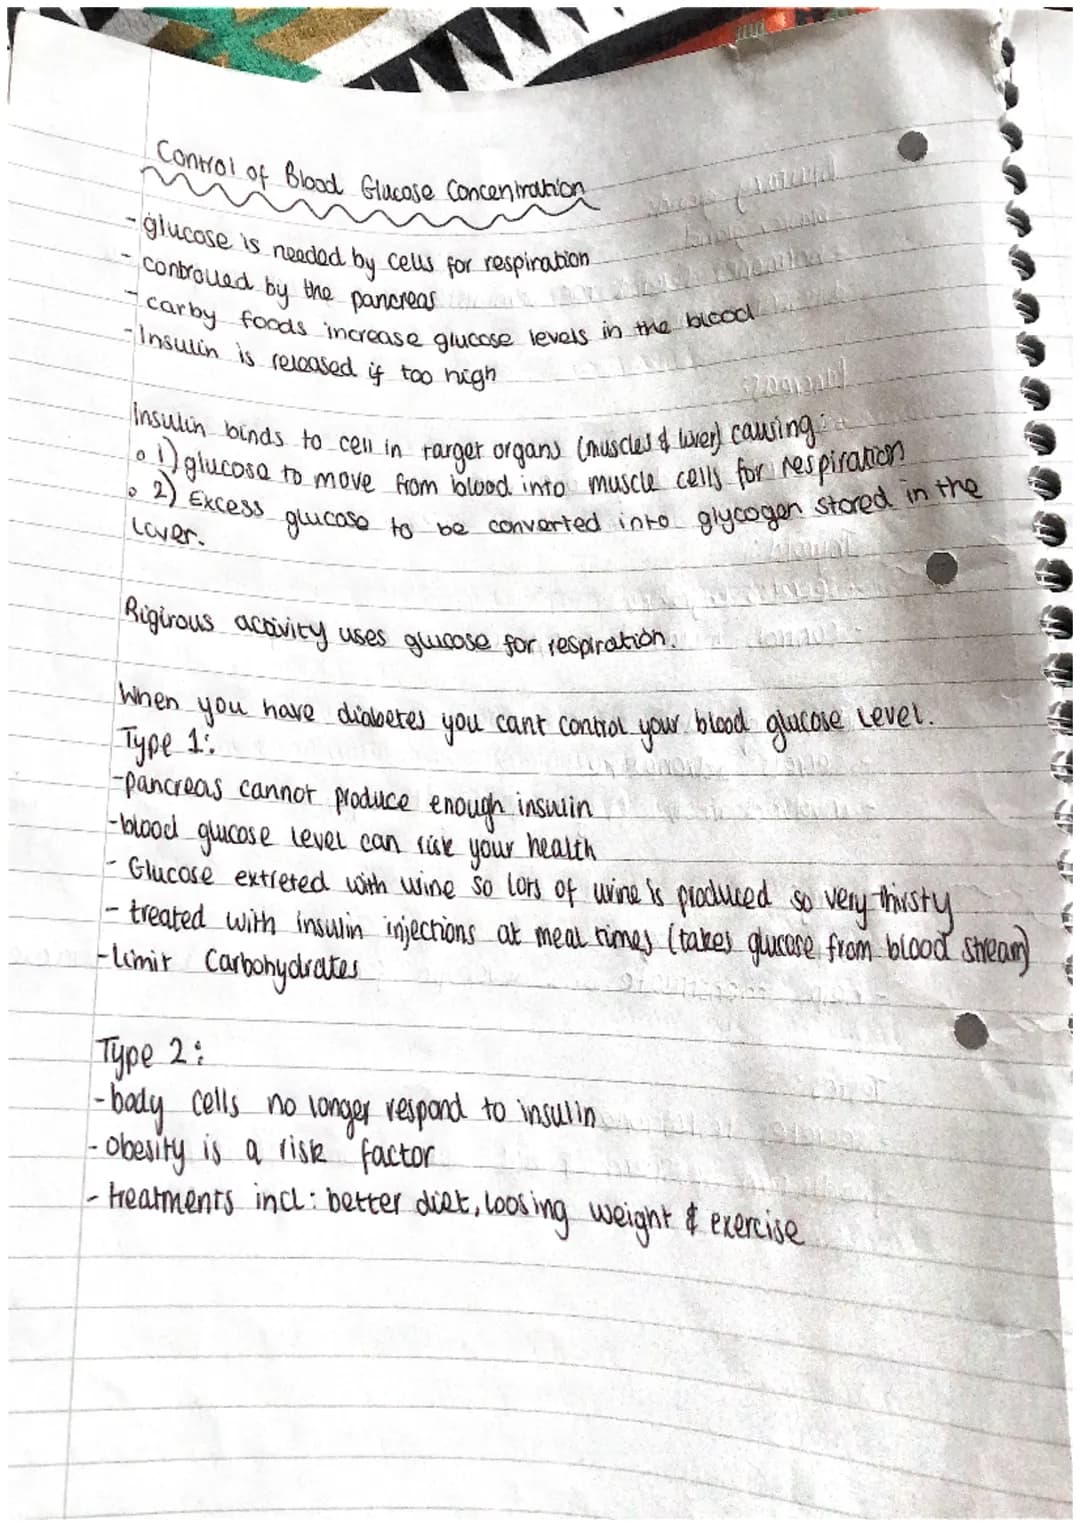 Control of Blood Glucose Concentration
- glucose is needed by cells for respiration
- controlled by the pancreas
- carby foods increase glucose levels in the blood
- Insulin is released if too high
Insulin binds to cell in target organs (muscles & liver) causing:
1) glucose to move from blood into muscle cells for respiration
2) Excess glucose to be converted into glycogen stored in the
liver.
Rigirous activity uses glucose for respiration.
When you have diabetes you cant control your blood glucose level.
Type 1:
- pancreas cannot produce enough insulin
- blood glucose level can risk your health
- Glucose extreted with urine so lots of urine is produced so very thirsty
- treated with insulin injections at meal times (takes glucose from blood stream)
- limit Carbohydrates
Type 2:
- body cells no longer respond to insulin
- obesity is a risk factor
- treatments incl: better diet, loosing weight & exercise